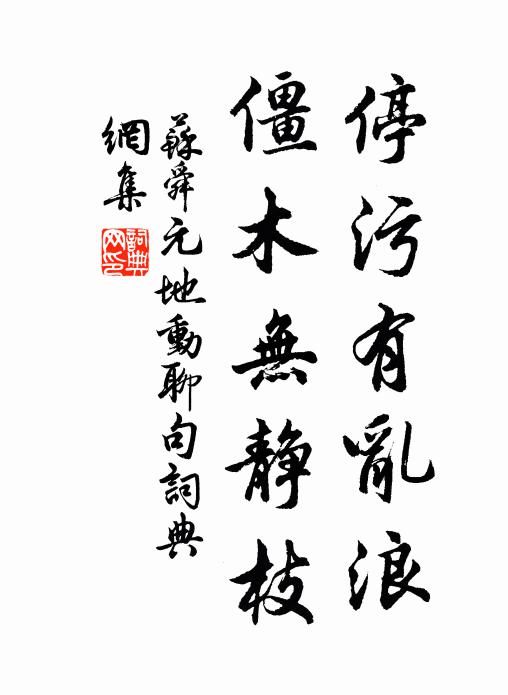 停污有亂浪
僵木無静枝
蘇舜元地動聊句詞典
網集
詞典网印